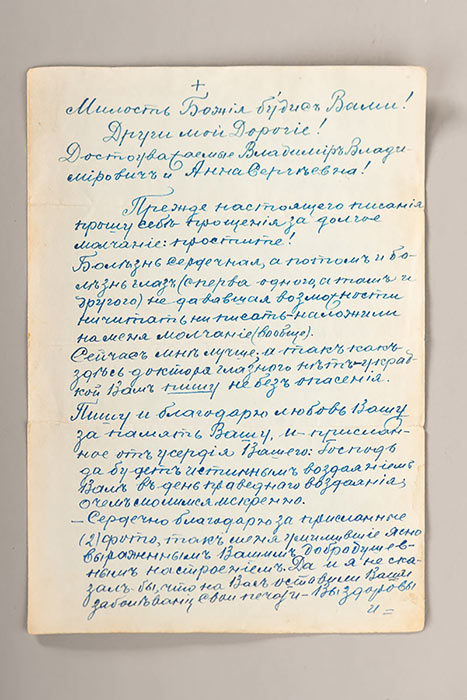 +
Милость Божія будисъ Вами!
Други мои Дорогіе!
Достоуважаемые Владиміръ Влади-
міровичъ и Анна Сергѣевна!
Прежде настоящего писанія
прошу себѣ прощенія за долгое
молчаніе: простите!
Болѣзнь сердечная, а потомъ и бо-
лѣзнь глазъ (сперва одного, а тамъ и
другого) не дававшая возможности
ни читать, ни писать – наложили
на меня молчаніе (вообще).
Сейчасъ мнѣ лучше, и такъ какъ
здѣсь доктора глазного нѣтъ – украд-
кой Вамъ пишу не безъ опасенія.
Пишу и благодарю любовь Вашу
за память Вашу, и – прислан-
ное отъ усердія Вашего: Господь
да будетъ истиннымъ воздаяніемъ
Вамъ въ день праведного воздаянія,
о чемъ молимся искренно.
– Сердечно благодарю за присланные
(2) фото, такъ меня умилившіе ясно
выраженнымъ Вашимъ добродушев-
нымъ настроеніемъ. Да и я не ска-
залъ-бы, что на Васъ оставили Ваши
заболѣванія свои печати – Вы здоровы
и =